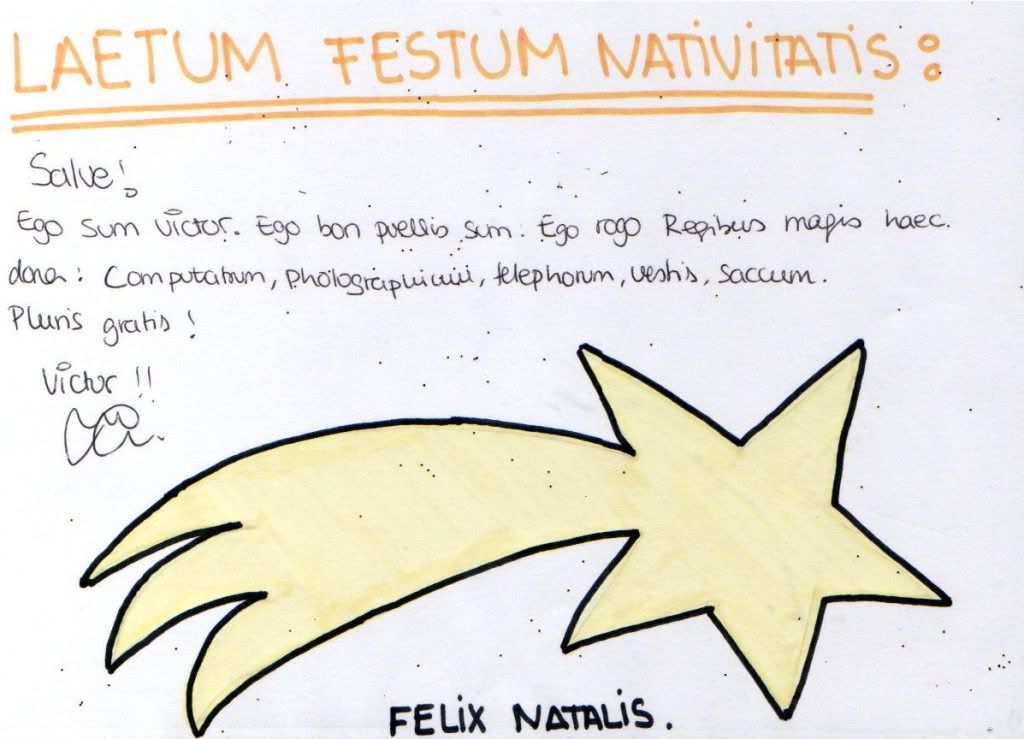 LAETUM FESTUM NATIVITATIS:
Salve!
Ego sum Victor. Ego bon puellis sum. Ego rogo Regibus magis haec.
dona: Computatrum, telephorum, vestis, saccum.
Pluris gratis!
Victor!!
FELIX NATALIS.